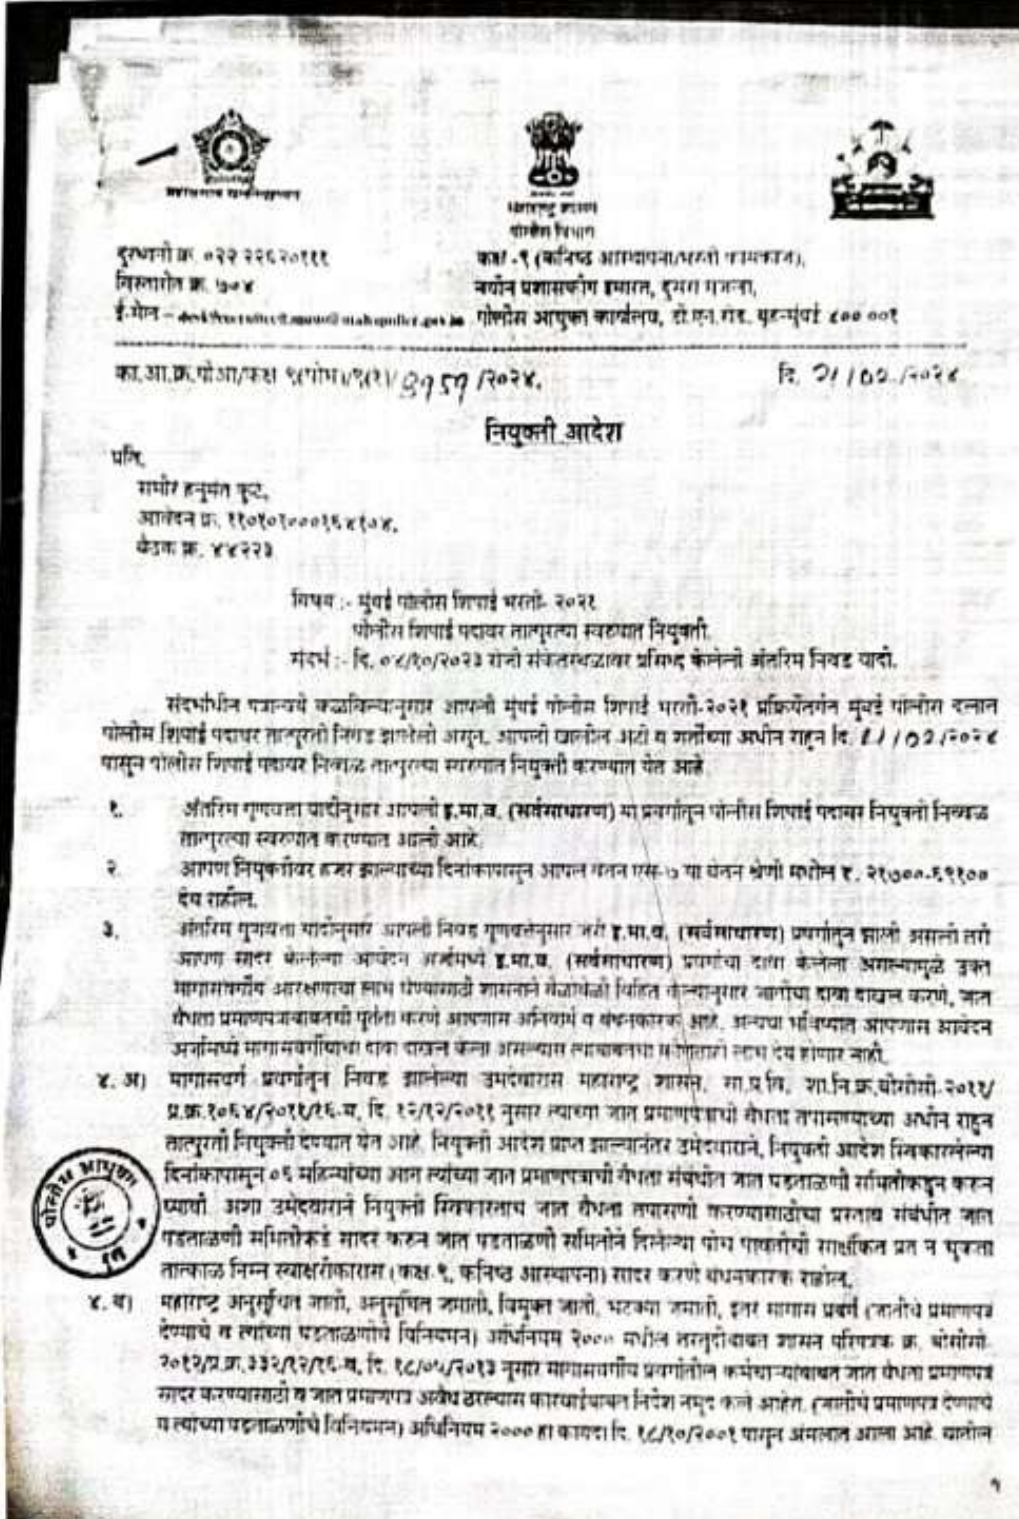 महाराष्ट्र शासन
पोलीस विभाग
दुरध्वनी क्र. ०२२ २२६२०१११
विस्तारीत क्र. ७०४
ई-मेल –
कक्ष -९ (कनिष्ठ आस्थापना/भरती कामकाज),
नवीन प्रशासकीय इमारत, दुसरा मजला,
पोलीस आयुक्त कार्यालय, डी.एन.रोड, बृहन्मुंबई ४०० ००१
का.आ.क्र.पोआ/कक्ष ९(पोभ)/९(१)/ /२०२४.
दि. २१/०२/२०२४
नियुक्ती आदेश
प्रति,
समीर हनुमंत
आवेदन क्र. ११०१०१०००१६४१०४,
बैठक क्र. ४४२२३
विषय :- मुंबई पोलीस शिपाई भरती- २०२१
पोलीस शिपाई पदावर तात्पुरत्या स्वरुपात नियुक्ती.
संदर्भ :- दि. ०४/१०/२०२३ रोजी संकेतस्थळावर प्रसिध्द केलेली अंतरिम निवड यादी.
संदर्भाधीन पत्रान्वये कळविल्यानुसार आपली मुंबई पोलीस शिपाई भरती-२०२१ प्रक्रियेतर्गत मुंबई पोलीस दलात
पोलीस शिपाई पदावर तात्पुरती निवड झालेली असून, आपली खालील अटी व शर्तीच्या अधीन राहुन दि. /०२/२०२४
पासून पोलीस शिपाई पदावर निव्वळ तात्पुरत्या स्वरुपात नियुक्ती करण्यात येत आहे.
१. अंतरिम गुणवत्ता यादीनुसार आपली इ.मा.व. (सर्वसाधारण) या प्रवर्गातुन पोलीस शिपाई पदावर नियुक्ती निव्वळ
तात्पुरत्या स्वरुपात करण्यात आली आहे.
२. आपण नियुक्तीवर हजर झाल्याच्या दिनांकापासून आपले वेतन एस-७ या वेतन श्रेणी मधील रु. २१७००-६९१००
देय राहील.
३. अंतरिम गुणवत्ता यादीनुसार आपली निवड गुणवत्तेनुसार जरी इ.मा.व. (सर्वसाधारण) प्रवर्गातुन झाली असली तरी
आपण सादर केलेल्या आवेदन अर्जामध्ये इ.मा.व. (सर्वसाधारण) प्रवर्गाचा दावा केलेला असल्यामुळे उक्त
मागासवर्गीय आरक्षणाचा लाभ घेण्यासाठी शासनाने वेळोवेळी विहित केल्यानुसार जातीचा दावा दाखल करणे, जात
वैधता प्रमाणपत्राबाबतची पुर्तता करणे आपणास अनिवार्य व बंधनकारक आहे. अन्यथा भविष्यात आपणास आवेदन
अर्जामध्ये मागासवर्गीयाचा दावा दाखल केला असल्यास त्याबाबतचा कोणताही लाभ देय होणार नाही.
४. अ) मागासवर्ग प्रवर्गातुन निवड झालेल्या उमेदवारास महाराष्ट्र शासन, सा.प्र.वि, शा.नि.क्र.बीसीसी-२०११/
प्र.क्र.१०६४/२०११/१६-ब, दि. १२/१२/२०११ नुसार त्याच्या जात प्रमाणपत्राची वैधता तपासण्याच्या अधीन राहुन
तात्पुरती नियुक्ती देण्यात येत आहे. नियुक्ती आदेश प्राप्त झाल्यानंतर उमेदवाराने, नियुक्ती आदेश स्विकारलेल्या
दिनांकापासुन ०६ महिन्यांच्या आत त्यांच्या जात प्रमाणपत्राची वैधता संबंधीत जात पडताळणी समितीकडुन करुन
घ्यावी. अशा उमेदवाराने नियुक्ती स्विकारताच जात वैधता तपासणी करण्यासाठीचा प्रस्ताव संबंधीत जात
पडताळणी समितीकडे सादर करुन जात पडताळणी समितीने दिलेल्या पोच पावतीची साक्षांकित प्रत न चुकता
तात्काळ निम्न स्वाक्षरीकारास (कक्ष-९, कनिष्ठ आस्थापना) सादर करणे बंधनकारक राहील.
पोलीस आयुक्त
मुंबई
४. ब) महाराष्ट्र अनुसूचित जाती, अनुसूचित जमाती, विमुक्त जाती, भटक्या जमाती, इतर मागास प्रवर्ग (जातीचे प्रमाणपत्र
देण्याचे व त्यांच्या पडताळणीचे विनियमन) अधिनियम २००० मधील तरतुदीबाबत शासन परिपत्रक क्र. बीसीसी-
२०१२/प्र.क्र.३३२/१२/१६-ब, दि. १८/०५/२०१३ नुसार मागासवर्गीय प्रवर्गातील कर्मचाऱ्यांबाबत जात वैधता प्रमाणपत्र
सादर करण्यासाठी व जात प्रमाणपत्र अवैध ठरल्यास कारवाईबाबत निर्देश नमुद केले आहेत. (जातीचे प्रमाणपत्र देण्याचे
व त्यांच्या पडताळणीचे विनियमन) अधिनियम २००० हा कायदा दि. १८/१०/२००१ पासून अंमलात आला आहे. यातील
१